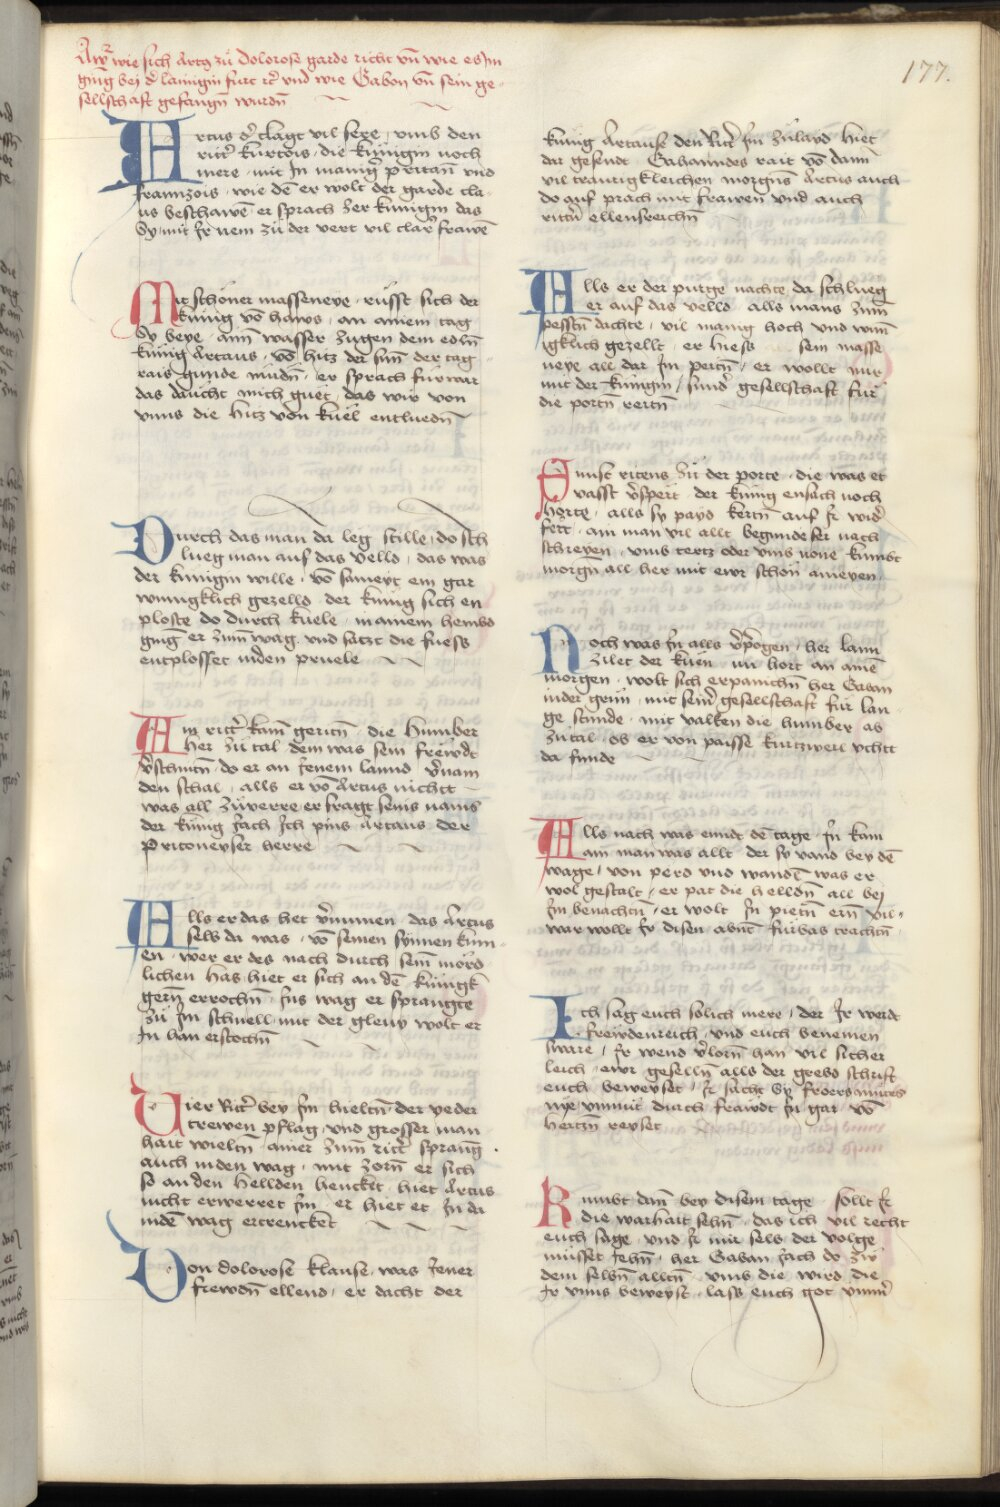 Awr wie sich Artus zu dolorose garde richt vñ wie es Im
ging bei d' lainigin furt rc' und wie Gabon vñ sein ge
sellschaft gefangñ wurdñ
177.
Artus d' clagt vil sere, vmb den
ritt' kurtois, die künigin noch
mere, mit In manig pritañ vnd
frannzois, wie dē er wolt der garde cla
us beschawē er sprach zer kunigin das
Sy mit Ir nem zü der vert vil clar frawē
Mit schöner masseneye, rüsst sich der
künig võ haws, an ainem tag
Sy beye, ainñ wasser zugen dem edlñ
künig Artaus, võ hitz der sunñ der tag
rais gunde müdñ, er sprach fürwar
das däucht mich guet, das wir von
vnns die hitz von küel entluedñ
Durch das man da leg stille, do sch
lueg man auf das velld, das was
der künigin wille, võ sameyt ein gar
wunigklich gezelld, der künig sich en
ploste do durch küele, in ainem hembd
ging er zum wag, vnd satzt die fuess
entplosset inden pruele
Ain ritt' kam geritñ, die humber
her zü tal dem was sein frewde
v'schnitñ, do er an Ienem lannd v'nam
den schal, alls er võ Artus nichtt
was all züuerre, er fragt seins nams
der künig Iach Ich pins Artaus der
Pritoneyser herre
Alls er das het v'nummen, das Artus
selb da was, võ seinen synnen kum
en, wer er des nach durch seinñ mörd
lichen has, hiet er sich an dē künigk
gern errochñ, Ins wag er sprangte
zü Im schnell mit der gleuy wolt er
In han erstochñ
Vier Ritt' bey Im hieltñ der yeder
trewen pflag, vnd grosser man
hait wieltñ, ainer zum ritt' sprang̃
auch inden wag, mit zorn er sich
so an den hellden henckt, hiet Artus
nicht erwerret Im, er hiet et In da
indē wag ertrencket
Von dolorose klause, was Iener
frewdñ ellend, er dacht der
künig Artause den Ritt' Im zülayd hiet
dar gesendt, Gahanndes rait võ danñ
vil traurigkleichen morgns Artus auch
do auf prach mit frawen vnd auch
rittñ ellensreichñ
Alls er der purge nachte, da schlueg
er auf das velld, alls mans zum
pesstñ dachte, vil manig hoch vnd wun
igklich gezellt, er hiess sein masse
neye all dar Im peitñ, er wollt nur
mit der künigin, sund gesellschaft für
die portñ reitñ
Sunst ritens zü der porte, die was et
vasst v'spert, der künig ensach noch
horte, alls sy payd kertñ auf Ir wid'
fert, ain man vil allt begunde ser nach
schreyen, vmb tertz oder vmb none kumbt
morgñ all her mit ewr schön ameyen
Noch was In alls v'pogen, her lann
zilet der küen, nu hort an ainē
morgen, wolt sich erpanichñ her Gaban
inder grün, mit sein' gesellschaft für lan
ge stunde, mit valken die humber ab
zütal, ob er von paisse kurtzweil ychtt
da funde
Alls nach was eundt dē tage, In kam
ain man was allt, der sy vand bey dē
wage, von perd vnd wandl was er
wol gestalt, er pat die helldñ all bej
Im benachtñ, er wolt In pietñ ern vil
war wollt Ir disen abnt fürbas trachtñ
Ich sag euch solich mere, der Ir werdt
frewdenreich, vnd euch benemen
sware, Ir wend v'lorñ han vil sicher
leich, ewr geselln alls der grebd schrift
euch beweyset,
hertzn reyset
Kumbt danñ bey disem tage, sollt Ir
die warhait sehñ, das ich vil recht
euch sage, vnd Ir mir selb der volge
müsset Iehñ, her Gaban Iach do zw
dem selbñ alltñ, vmb die wird die
Ir vnns beweyst, lass euch got vnnñ